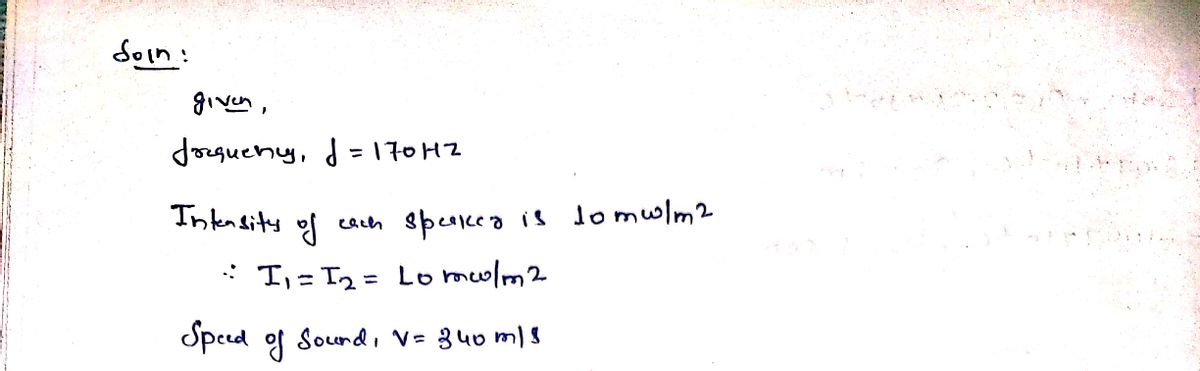 Soln:
given,
frequency, f = 170 Hz
Intensity of each speaker is 10 mw/m2
∴ I1 = I2 = 10 mw/m2
Speed of Sound, V = 340 m/s